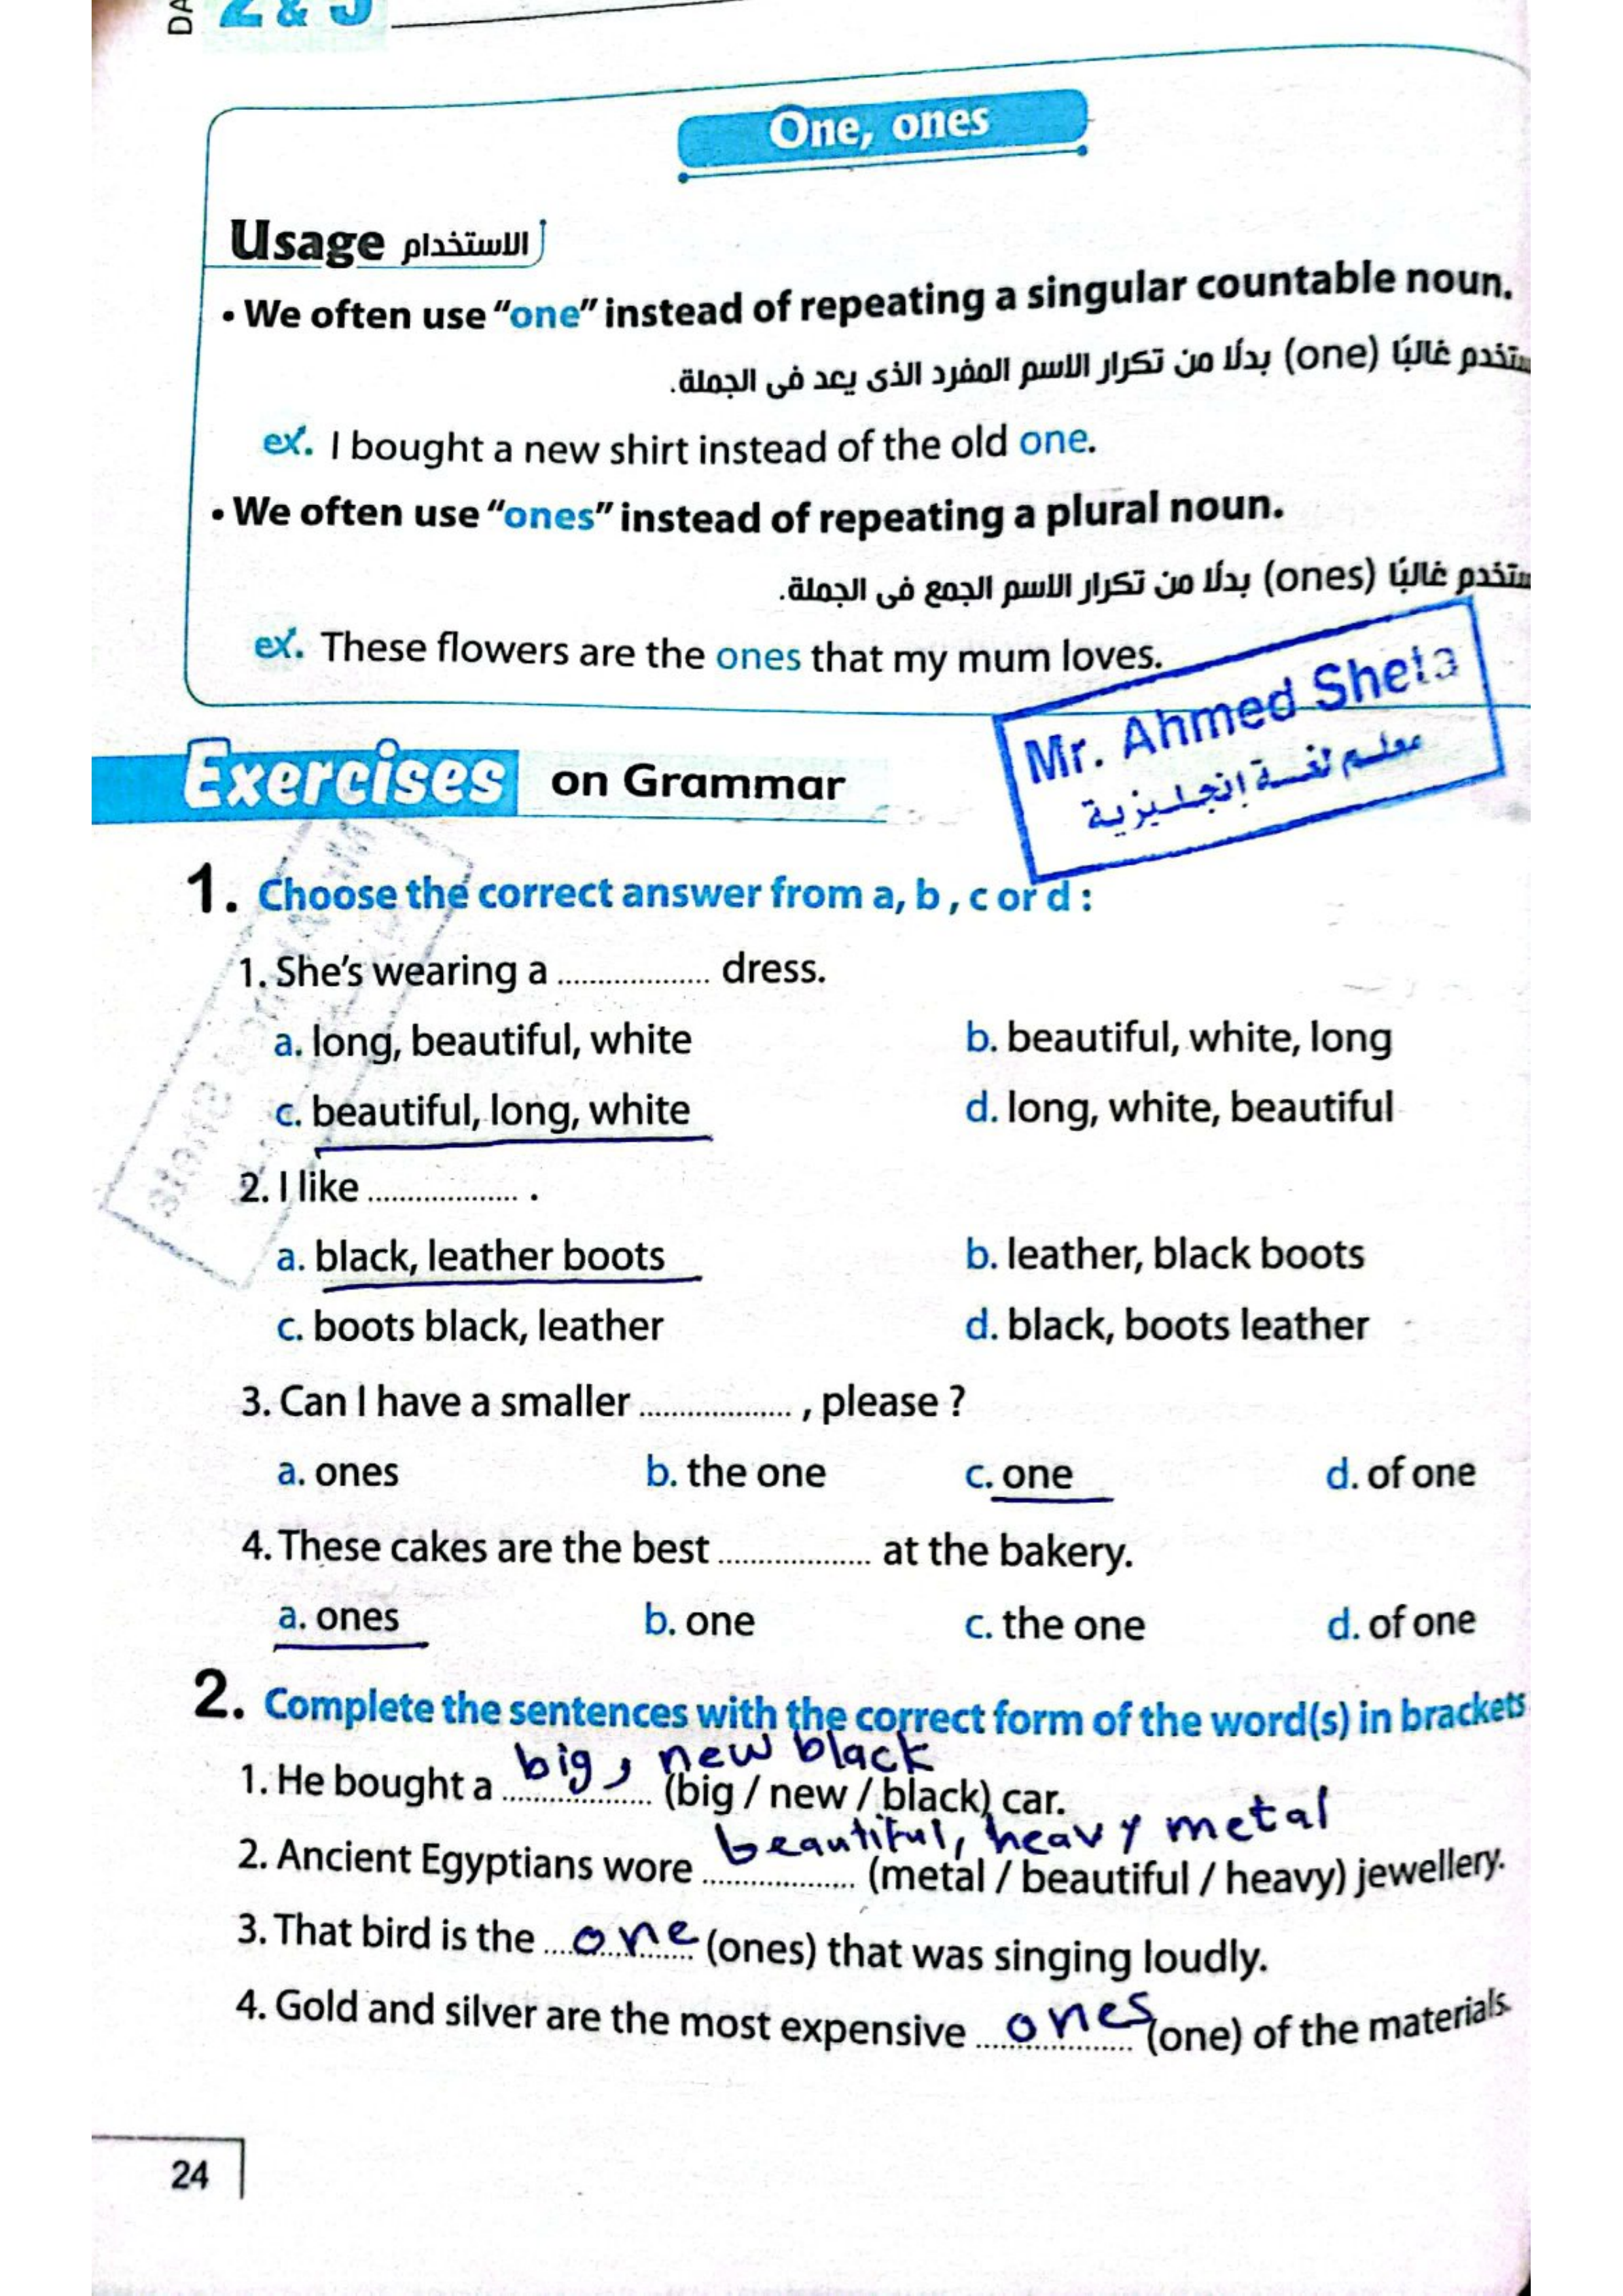 DA 2 & 3
One, ones
Usage الاستخدام
• We often use “one” instead of repeating a singular countable noun.
ستخدم غالبًا (one) بدلًا من تكرار الاسم المفرد الذى يعد فى الجملة.
ex. I bought a new shirt instead of the old one.
• We often use “ones” instead of repeating a plural noun.
ستخدم غالبًا (ones) بدلًا من تكرار الاسم الجمع فى الجملة.
ex. These flowers are the ones that my mum loves.
Mr. Ahmed Sheta
معلم لغة إنجليزية
Exercises on Grammar
1. Choose the correct answer from a, b , c or d :
1. She’s wearing a .................. dress.
a. long, beautiful, white b. beautiful, white, long
c. beautiful, long, white d. long, white, beautiful
2. I like .................. .
a. black, leather boots b. leather, black boots
c. boots black, leather d. black, boots leather
3. Can I have a smaller .................. , please ?
a. ones b. the one c. one d. of one
4. These cakes are the best .................. at the bakery.
a. ones b. one c. the one d. of one
2. Complete the sentences with the correct form of the word(s) in brackets
1. He bought a big, new black (big / new / black) car.
2. Ancient Egyptians wore beautiful, heavy metal (metal / beautiful / heavy) jewellery.
3. That bird is the one (ones) that was singing loudly.
4. Gold and silver are the most expensive ones (one) of the materials.
24